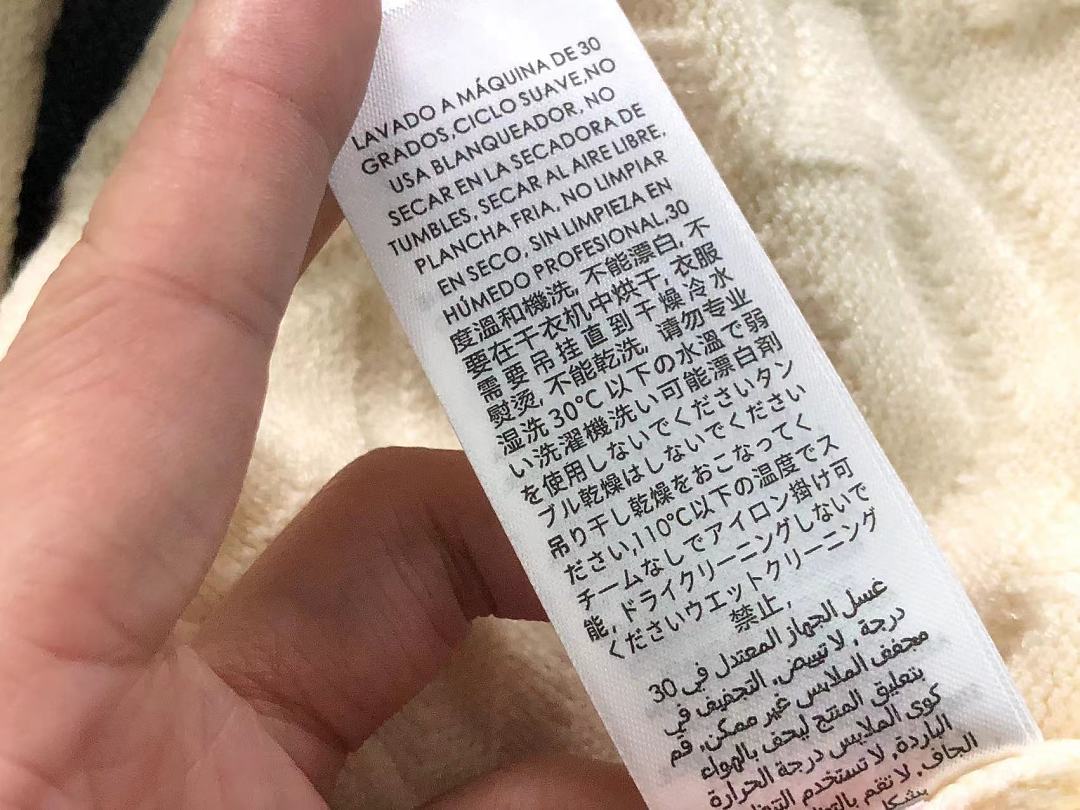 LAVADO A MÁQUINA DE 30
GRADOS,CICLO SUAVE,NO
USA BLANQUEADOR, NO
SECAR EN LA SECADORA DE
TUMBLES, SECAR AL AIRE LIBRE,
PLANCHA FRIA, NO LIMPIAR
EN SECO, SIN LIMPIEZA EN
HÚMEDO PROFESIONAL,30
度溫和機洗, 不能漂白, 不
要在干衣机中烘干, 衣服
需要吊挂直到干燥冷水
熨烫, 不能乾洗, 请勿专业
湿洗 30°C 以下の水溫で弱
い洗濯機洗い可能漂白剤
を使用しないでくださいタン
ブル乾燥はしないでください
吊り干し乾燥をおこなってく
ださい,110°C以下の温度でス
チームなしでアイロン掛け可
能, ドライクリーニングしないで
くださいウエットクリーニング
禁止,
غسل الجهاز المعتدل في 30
درجة , لا تبيض, التجفيف في
مجفف الملابس غير ممكن, قم
بتعليق المنتج ليجف بالهواء
كوى الملابس درجة الحرارة
الباردة, لا تستخدم
الجاف, لا تقم